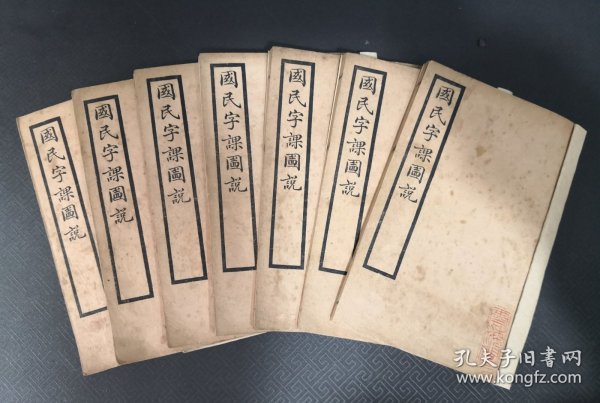 國民字課圖説
國民字課圖説
國民字課圖説
國民字課圖説
國民字課圖説
國民字課圖説
國民字課圖説
孔夫子旧書网
www.kongfz.com